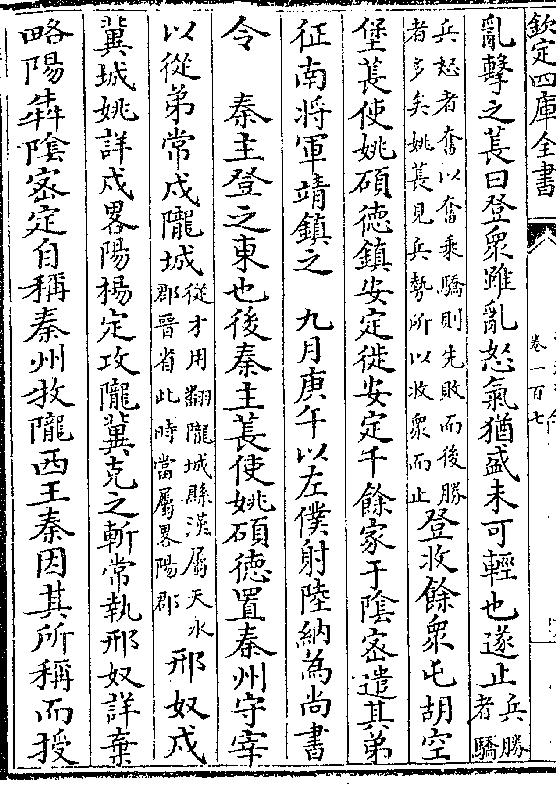 欽定四庫全書
卷一百七
亂擊之萇曰登衆雖亂怒氣猶盛未可輕也遂止兵勝者驕
兵怒者奮以奮乘驕則先敗而後勝者多矣姚萇見兵勢所以收衆而止登收餘衆屯胡空
堡萇使姚碩德鎮安定徙安定千餘家于陰密遣其弟
征南將軍靖鎮之 九月庚午以左僕射陸納為尚書
令 秦主登之東也後秦主萇使姚碩德置秦州守宰
以從弟常戍隴城從才用翻隴城縣漢屬天水郡晉省此時當屬畧陽郡邢奴戍
冀城姚詳戍畧陽楊定攻隴冀克之斬常執邢奴詳棄
略陽犇陰密定自稱秦州牧隴西王秦因其所稱而授